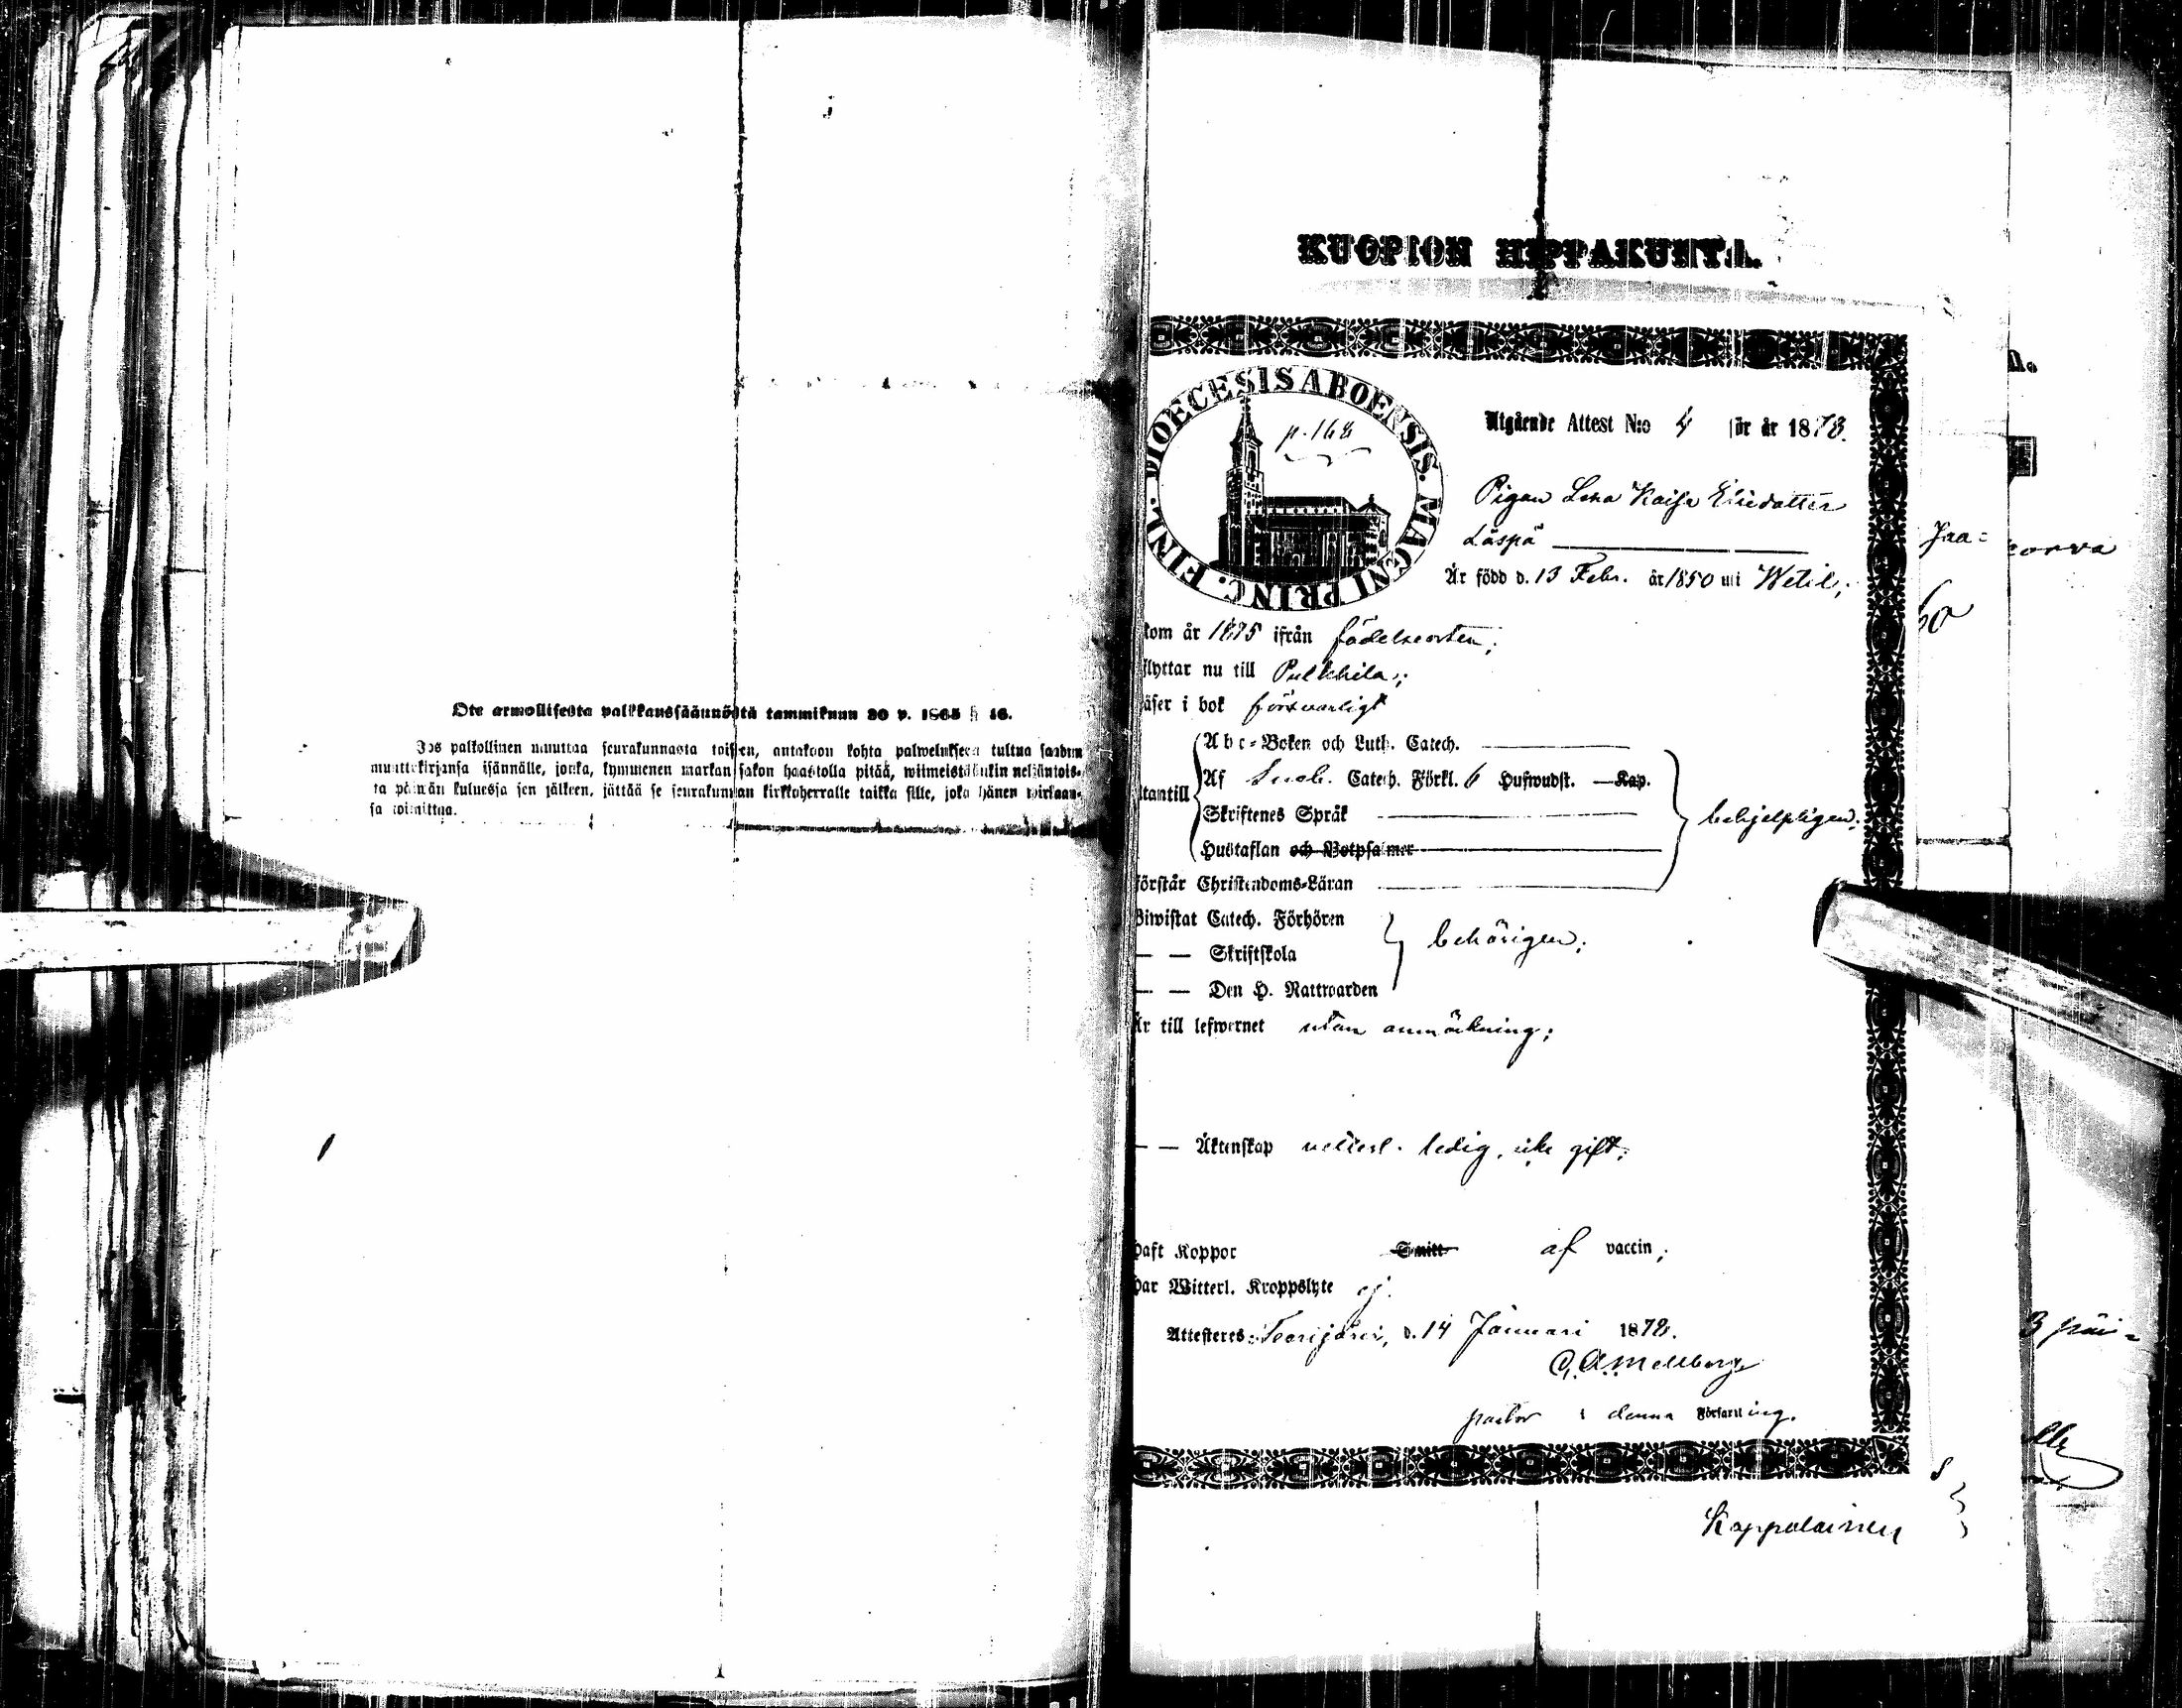 Ote armollisesta palkkaussäännöstä tammikuun 30 p. 1865 § 46.
Jos palkollinen muuttaa seurakunnasta toiseen, antakoon kohta palwelukseen tultua saadun
muuttokirjansa isännälle, jonka, kymmenen markan sakon haastolla pitää, wiimeistäänkin neljäntois-
ta päiwän kuluessa sen jälkeen, jättää se seurakunnan kirkkoherralle taikka sille, joka hänen wirkaan-
sa toimittaa.
KUOPION HIPPAKUNTA.
DIOECESIS ABOENSIS. MAGNI PRINC. FINL.
p. 168
Utgående Attest N:o 4 för år 1878.
Pigan Lena Kaisa Eliedotter
Läspä
Är född d. 13 Febr. år 1850 uti Wetil;
kom år 1875 ifrån födelseorten;
flyttar nu till Pulkkila;
läser i bok försvarligt
Abc-Boken och Luth. Catech.
Af Sueb. Catech. Förkl. 6 Hufwudst. Kap.
utantill
Skriftenes Språk
behjelpligen;
Hustaflan och Botpsalmer
förstår Christendoms-Läran
Biwistat Catech. Förhören
— — Skriftskola
behörigen;
— — Den H. Nattwarden
Är till lefwernet utan anmärkning;
— — Äktenskap vetterl. ledig, icke gift;
haft Koppor Smitt af vaccin;
har Witterl. Kroppslyte ej.
Attesteras: Teerijärvi, d. 14 Januari 1878.
Mellberg
pastor i denna Författning.
Jaa-
60
orva
3 päi-
Koppolainen